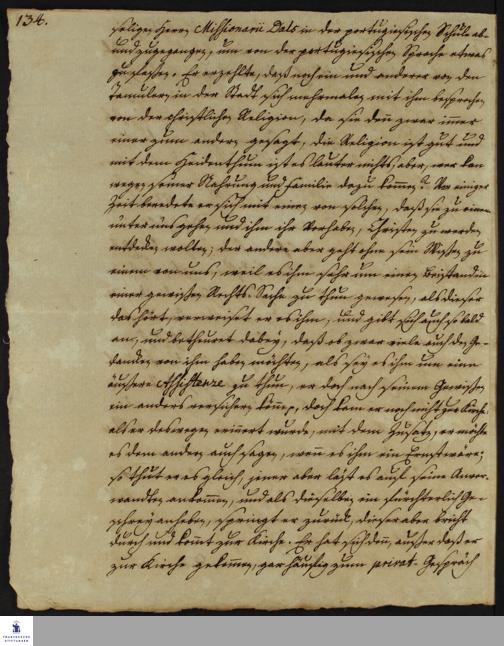 134.
seligen Herrn Missionarii Dals in der portugiesischen Schule ab-
und zugegangen, um von der portugiesischen Sprache etwas
zu fassen. Er erzehlte, daß noch ein und anderer von den
Tamulern in der Stadt sich mehrmalen mit ihm besprochen
von der christlichen Religion, da sie denn zwar immer
einer zum andern gesagt, die Religion ist gut und
mit dem Heidenthum ist es lauter nichts, aber, wer kan
wegen seiner Nahrung und Familie dazu kommen? Vor einiger
Zeit beredete er sich mit einen von solchen, daß sie zu einem
unter uns gehen und ihm ihr Vorhaben, Christen zu werden
entdecken wolten; der andere aber geht ohne sein Wissen zu
einem von uns, weil es ihm sehr um einen Beistand in
einer gewissen Rechts-Sache zu thun gewesen, als dieser
das hört, verweiset er es ihm, und gibt sich auch so bald
an, und betheuret dabey, daß es zwar viele auch den Ge-
danken von ihm haben möchten, als sey es ihm um eine
äussere Assistenze zu thun, er doch nach seinem Gewissen
ein anders versichern könne, doch kam er noch nicht zur Kirche
als er deswegen erinnert wurde, mit dem Zusatz, er möchte
es dem andern auch sagen, wenn es ihm ein Ernst wäre;
so thut er es gleich, jener aber läst es auf seine Anver-
wandten ankommen, und als dieselben ein fürchterlich Ge-
schrey anheben, springt er zurück, dieser aber bricht
durch und kommt zur Kirche. Er hat sich denn, ausser daß er
zur Kirche gekommen, gar häufig zum privat-Gespräch
FRANCKESCHE
STIFTUNGEN